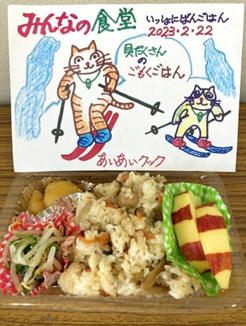 みんなの食堂
いっしょにばんごはん
2023・2・22
具だくさん
の
ごもくごはん
あいあいクック